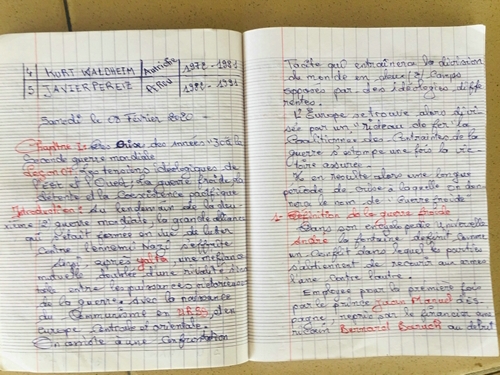 4 KURT WALDHEIM Autriche 1972-1981
5 JAVIER PEREIZ PEROU 1982-1991
Samedi le 08 Février 2020
Chapitre I: La crise des années 30 à la
Seconde guerre mondiale
Leçon 07: Les tensions idéologiques de
l'Est et l'Ouest, la guerre froide, la
détente et la Coexistence pacifique
Introduction: Au lendemain de la deu-
xième guerre mondiale la grande alliance
qui s'était formée en vue de lutter
contre l'ennemi Nazi s'effrite
ainsi après yalta, une méfiance
mutuelle doublée d'une rivalité s'ins
entre les puissances victorieuses
de la guerre. Avec la naissance
du Communisme en U.R.S.S, et en
europe centrale et orientale.
On assiste à une Confrontation
Tacite qui entrainera la division
du monde en deux (2) Camps
opposés par des idéologies diffé
rentes.
L'Europe se trouve alors divi-
sée par un "rideau de fer" la
Coalition née des Contraintes de la
guerre s'estompe une fois la vic-
toire assurée.
Il en résulte alors une longue
période de crise à laquelle on don-
nera le nom de "Guerre froide"
1- Définition de la guerre froide
Dans son encyclopédie universelle
André la fontaine définit comme
un Conflit dans lequel les parties
s'abstiennent de recourir aux armes
l'une contre l'autre.
Employée pour la première fois
par le prince Juan Manuel d'es-
pagne, repris par le financier amé
ricain Bernard Baruch au début